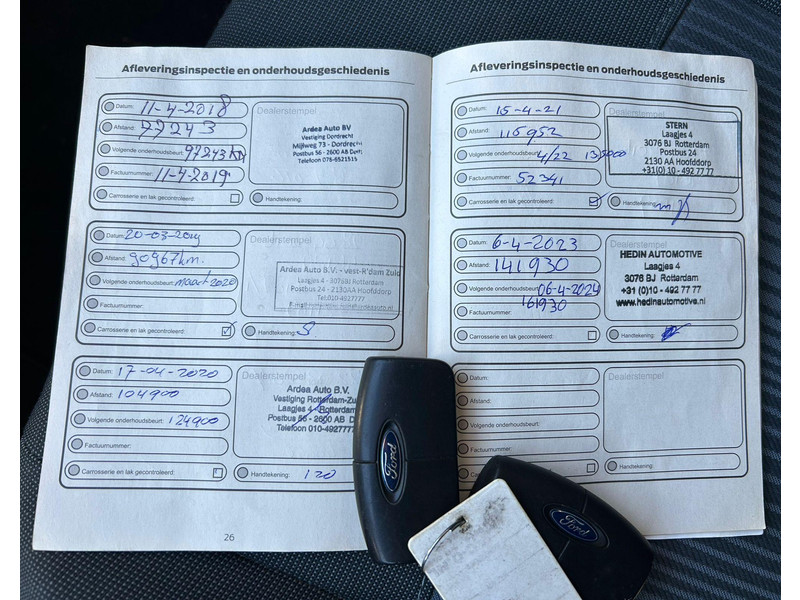 Afleveringsinspectie en onderhoudsgeschiedenis
Datum: 11-4-2018
Afstand: 77243
Volgende onderhoudsbeurt: 97243 km
Factuurnummer: 11-4-2019
Carrosserie en lak gecontroleerd:
Dealerstempel
Ardea Auto BV
Vestiging Dordrecht
Mijlweg 73 - Dordrecht
Postbus 56 - 2600 AB Delft
Telefoon 078-6521515
Handtekening:
Datum: 20-03-2019
Afstand: 90967 km.
Volgende onderhoudsbeurt: maart 2020
Factuurnummer:
Carrosserie en lak gecontroleerd:
Dealerstempel
Ardea Auto B.V. - vest-R'dam Zuid
Laagjes 4 - 3076BJ Rotterdam
Postbus 24 - 2130AA Hoofddorp
Tel:010-4927777
Handtekening:
Datum: 17-04-2020
Afstand: 104900
Volgende onderhoudsbeurt: 124900
Factuurnummer:
Carrosserie en lak gecontroleerd:
Dealerstempel
Ardea Auto B.V.
Vestiging Rotterdam-Zu
Laagjes 4 - Rotterdam
Postbus 56 - 2600 AB D
Telefoon 010-4927777
Handtekening: 120
26
Afleveringsinspectie en onderhoudsgeschiedenis
Datum: 15-4-21
Afstand: 115952
Volgende onderhoudsbeurt: 4/22
Factuurnummer: 52341
Carrosserie en lak gecontroleerd:
Dealerstempel
STERN
Laagjes 4
3076 BJ Rotterdam
Postbus 24
2130 AA Hoofddorp
+31(0)10 - 492 77 77
Handtekening:
Datum: 6-4-2023
Afstand: 141930
Volgende onderhoudsbeurt: 06-4-2024
161930
Factuurnummer:
Carrosserie en lak gecontroleerd:
Dealerstempel
HEDIN AUTOMOTIVE
Laagjes 4
3076 BJ Rotterdam
+31 (0)10 - 492 77 77
www.hedinautomotive.nl
Handtekening:
Datum:
Afstand:
Volgende onderhoudsbeurt:
Factuurnummer:
Carrosserie en lak gecontroleerd:
Dealerstempel
Handtekening:
Ford
Ford